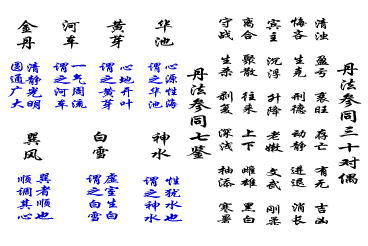 丹法参同三十对偶
清浊 盈亏 衰旺 存亡 有无 吉凶
悔吝 生克 刑德 动静 进退 消长
宾主 沉浮 升降 老嫩 文武 刚柔
离合 聚散 往来 上下 雌雄 黑白
守战 生杀 剥复 深浅 抽添 寒暑
丹法参同七鉴
华池
心源性海
谓之华池
黄芽
心地开叶
谓之黄芽
河车
一气周流
谓之河车
金丹
清静光明
圆通广大
神水
性犹水也
谓之神水
白雪
虚室生白
谓之白雪
巽风
巽者顺也
顺调其心